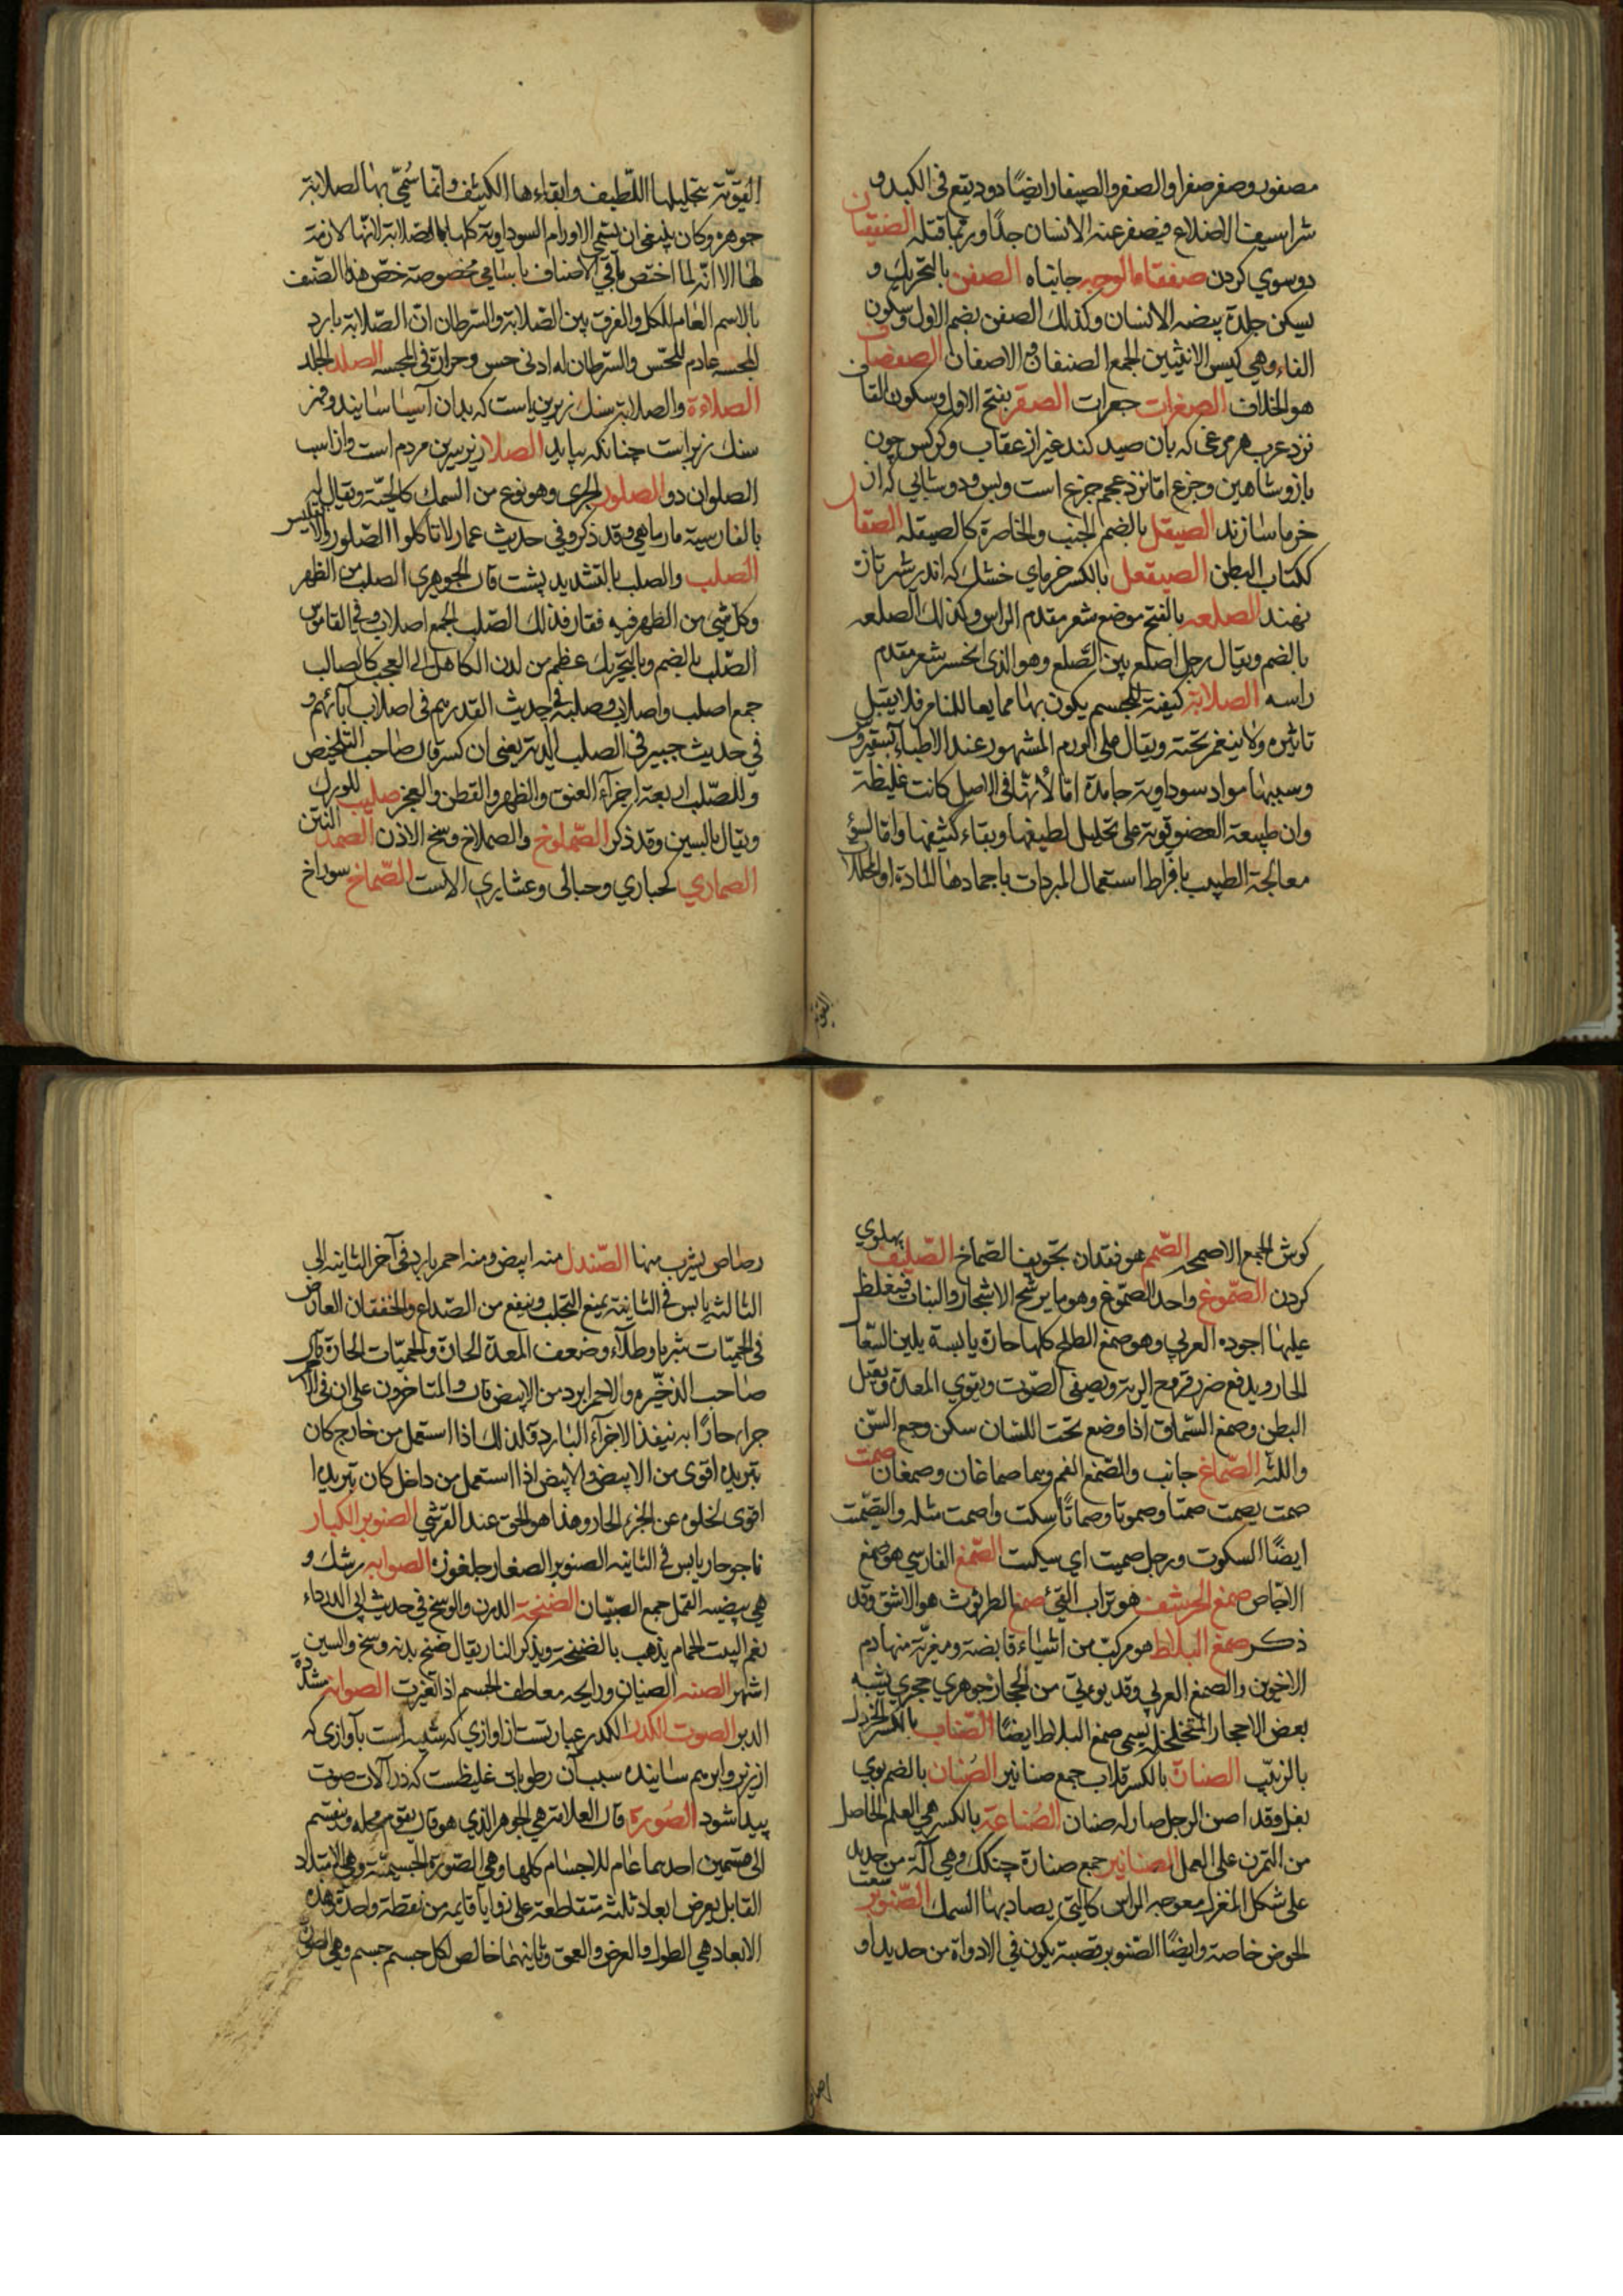 مصفور وصفر صفرا والصفر والصفار ايضًا دود يقع فى الكبد و
شراسيف الاضلاع فيصفر عنه الانسان جدًا وربما قتله الصفقان
دو سوي كردن صفقاء الوجه جانباه الصفن بالتحريك و
يسكن جلدة بيضه الانسان وكذلك الصفن بضم الاول وسكون
الفاء وهي كيس الانثيين الجمع الاصفان الصفصاف
هو الخلاف الصقرات جعرات الصقر بفتح الاول وسكون القاف
نزد عرب هر مرغى كه بان صيد كند غير از عقاب وكركس چون
باز وشاهين وجزع اما نزد عجم جزع است وبس ودوشابي كه از
خرما سازند الصيقل بالضم الجنب والخاصرة كالصيقله الصقار
ككتاب البطن الصيقعل بالكسر خرماي خشك كه اندر شير تازه
نهند الصلعه بالفتح موضع شعر مقدم الراس وكذلك الصلعه
بالضم ويقال رجل اصلع بين الصّلع وهو الذى انحسر شعر مقدم
راسه الصلابة كيفية للجسم يكون بها ممايعا للغامز فلا يقبل
تاثيره ولا ينغمز تحته ويقال على الورم المشهور عند الاطباء بسقيروس
وسببها مواد سوداوية جامدة امّا لأنها فى الاصل كانت غليظة
وان طبيعة العضو قوية على تحليل لطيفها وبقاء كثيفها واما لسؤ
معالجة الطبيب بافراط استعمال المبردات باجمادها المادة او المحللات
القويّة بتحليلها اللّطيف وابقاءها الكثيف وانما سُمّى بها الصلابة
جوهره وكان ينبغى ان يسمى الاورام السوداوية كلها بالصّلابة لانها لازمة
لها الا انّه لما اختص باقي الاصناف باسامى مخصوصة خصّ هذا الصّنف
بالاسم العام للكل والفرق بين الصّلابة والسّرطان انّ الصّلابة بارد
المجسه عادم للحسّ والسّرطان له ادنى حس وحرارة فى المجسه الصلد الجلد
الصلاءة والصلابة سنك زيرين است كه بدان آسيا سايند وفهر
سنك زبر است چنانكه بيايد الصلا زير سرين مردم است واز اسب
الصلوان دو الصلور الجرى وهو نوع من السمك كالحيّة ويقال له
بالفارسية مارماهى وقد ذكر وفي حديث عمار لا تاكلوا الصّلور والانقليس
الصلب والصلب بالتشديد پشت قال الجوهرى الصلب من الظهر
وكل شئ من الظهر فيه فقار فذلك الصّلب الجمع اصلاب وفي القاموس
الصّلب بالضم وبالتّحريك عظم من لدن الكاهل الى العجب كالصالب
جمع اصلب واصلاب وصلبة في حديث القدر هم فى اصلاب آبائهم و
في حديث جبير فى الصلب الدية يعني ان كسر قال صاحب التلخيص
وللصّلب اربعة اجزآء العنق والظهر والقطن والعجز صليب للورك
ويقال بالسين وقد ذكر الصّملوخ والصملاخ وسخ الاذن الصمد النتن
الصمارى كحبارى وحبالى وعشارى الاست الصّماخ سوراخ
القوية
كوش الجمع الاصمخه الصّمم هو فقدان تجويف الصّماخ الصّليف پهلوي
كردن الصّموغ واحد الصّموغ وهو ما يرشح الاشجار والنبات فيغلظ
عليها اجوده العربي وهو صمغ الطلح كلها حارة يابسة يلين السّعال
الحار ويدفع ضرر قروح الرية ويصفى الصّوت ويقوي المعدة ويعقل
البطن وصمغ السّماق اذا وضع تحت اللسان سكن وجع السّن
واللثه الصّماغ جانب والصّمغ الفم وهما صماغان وصمغان صمت
صمت يصمت صمتا وصموتا وصماتًا سكت واصمت مثله والتصّمت
ايضًا السكوت ورجل صميت اى سكيت الصّمغ الفارسي هو صمغ
الاجّاص صمغ الحرشف هو تراب القئ صمغ الطرثوث هو الاشق وقد
ذكر صمغ البلاط هو مركبّ من اشياء قابضة ومغريّة منها دم
الاخوين والصمغ العربي وقد يوتى من الحجاز جوهري حجري يشبه
بعض الاحجار المتخلخله يسمى صمغ البلاط ايضًا الصّناب بالكسر الخردل
بالزبيّب الصنارة بالكسر قلاب جمع صنانير الصّنان بالضم بوي
بغل وقد اصن الرجل صار له صنان الصّناعة بالكسر هي العلم الحاصل
من التمرن على العمل الصنانير جمع صنارة چنكك وهي آلة من حديد
على شكل المغزل معوجه الراس كالتي يصاد بها السمك الصّنوبر
الحوض خاصة وايضًا الصّنوبر قصبة يكون في الادواة من حديد او
رصاص يشرب منها الصّندل منه ابيض ومنه احمر بارد فى آخر الثانية الى
الثالثه يابس في الثانية يمنع التحلب وينفع من الصّداع والخفقان العارض
فى الحميّات شربا وطلآء وضعف المعدة الحارة والحميّات الحارة قال
صاحب الذخيره والاحمر ابرد من الابيض قال والمتاخرون على ان فى الاحمر
جزاء حارًا به ينفذ الاجزآء البارد ولذلك اذا استعمل من خارج كان
تبريده اقوى من الابيض والابيض اذا استعمل من داخل كان تبريده
اقوى لخلوه عن الجزء الحار وهذا هو الحق عند القرشي الصنوبر الكبار
ناجو حار يابس في الثانيه الصنوبر الصغار جلغوزه الصوابه رشك و
هي بيضيه القمل جمع الصئبان الصنخة الدرن والوسخ في حديث ابي الدرداء
نعم البيت الحمام يذهب بالصنخة ويذكر النار يقال صنخ بدنه وسخ والسين
اشهر الصنه الصنان ورايحه معاطف الجسم اذا تغيرت الصوانه شدّة
الدبر الصوت الكدر الكدر عبارتست از اوازي كه شبيه است بآوازى كه
از ارزيز وابريم ساينده سبب آن رطوبات غليظست كه در آلات صوت
پيدا شود الصّورة قال العلامة هي الجوهر الذي هو قال يقوم محله وينقسم
الى قسمين احدهما عام للاجسام كلها وهى الصّورة الجسيميّة وهي الامتداد
القابل بعرض ابعاد ثلثه متقاطعة على زوايا قايمه من نقطة واحدة وهذه
الابعاد هي الطول والعرض والعمق وثانيهما خالص لكل جسم جسم وهي الصورة
رصاص